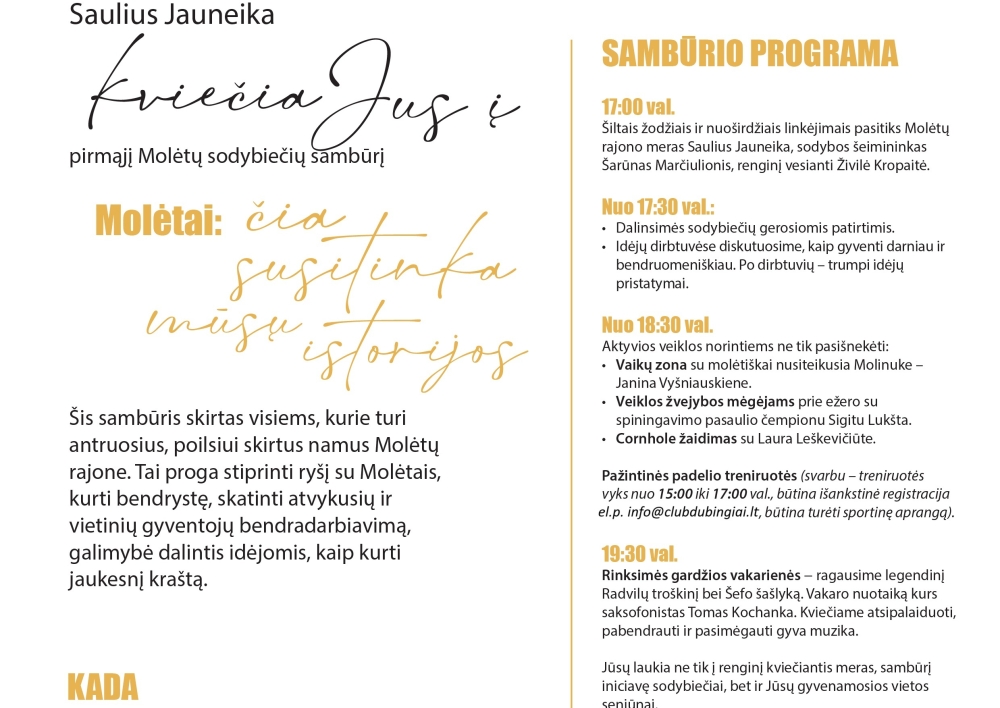 Saulius Jauneika
kviečia Jus į
pirmąjį Molėtų sodybiečių sambūrį
Molėtai: čia
susitinka
mūsų
istorijos
Šis sambūris skirtas visiems, kurie turi
antruosius, poilsiui skirtus namus Molėtų
rajone. Tai proga stiprinti ryšį su Molėtais,
kurti bendrystę, skatinti atvykusių ir
vietinių gyventojų bendradarbiavimą,
galimybė dalintis idėjomis, kaip kurti
jaukesnį kraštą.
KADA
SAMBŪRIO PROGRAMA
17:00 val.
Šiltais žodžiais ir nuoširdžiais linkėjimais pasitiks Molėtų
rajono meras Saulius Jauneika, sodybos šeimininkas
Šarūnas Marčiulionis, renginį vesianti Živilė Kropaitė.
Nuo 17:30 val.:
• Dalinsimės sodybiečių gerosiomis patirtimis.
• Idėjų dirbtuvėse diskutuosime, kaip gyventi darniau ir
bendruomeniškiau. Po dirbtuvių – trumpi idėjų
pristatymai.
Nuo 18:30 val.
Aktyvios veiklos norintiems ne tik pasišnekėti:
• Vaikų zona su molėtiškai nusiteikusia Molinuke –
Janina Vyšniauskiene.
• Veiklos žvejybos mėgėjams prie ežero su
spiningavimo pasaulio čempionu Sigitu Lukšta.
• Cornhole žaidimas su Laura Leškevičiūte.
Pažintinės padelio treniruotės (svarbu – treniruotės
vyks nuo 15:00 iki 17:00 val., būtina išankstinė registracija
el.p. info@clubdubingiai.lt, būtina turėti sportinę aprangą).
19:30 val.
Rinksimės gardžios vakarienės – ragausime legendinį
Radvilų troškinį bei Šefo šašlyką. Vakaro nuotaiką kurs
saksofonistas Tomas Kochanka. Kviečiame atsipalaiduoti,
pabendrauti ir pasimėgauti gyva muzika.
Jūsų laukia ne tik į renginį kviečiantis meras, sambūrį
iniciavę sodybiečiai, bet ir Jūsų gyvenamosios vietos
seniūnai.